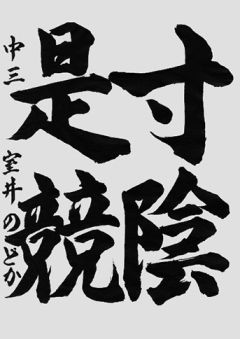 寸陰
是競
中三 室井のどか